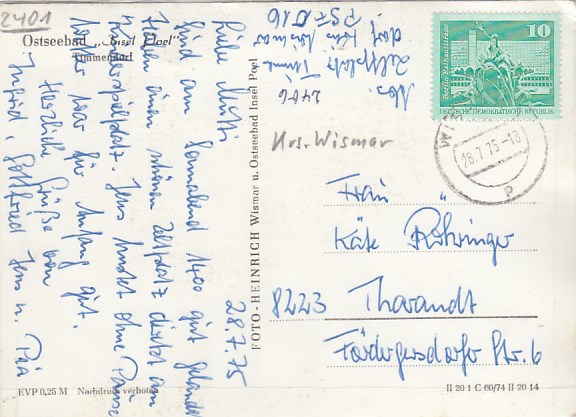 2401
Ostseebad „Insel Poel"
Timmendorf
28.7.75
Liebe Mutti
Sind am Sonnabend 14oo gut gelandet
Haben einen schönen Zeltplatz direkt am
Kinderspielplatz. Jens hustet ohne Pause
Wetter war für Anfang gut.
Herzliche Grüße von
Ingrid, Gottfried Jens u. Pia
Abs.
2406
Zeltplatz Timmen
dorf Krs. Wismar
PSF D16
Krs. Wismar
FOTO-HEINRICH Wismar u. Ostseebad Insel Poel
10
DEUTSCHE DEMOKRATISCHE REPUBLIK
28.7.75-18
P
Frau
Käte Röhringer
8223 Tharandt
Fördergersdorfer Str. 6
EVP 0,25 M Nachdruck verboten
II 20 1 C 60/74 II 20 14